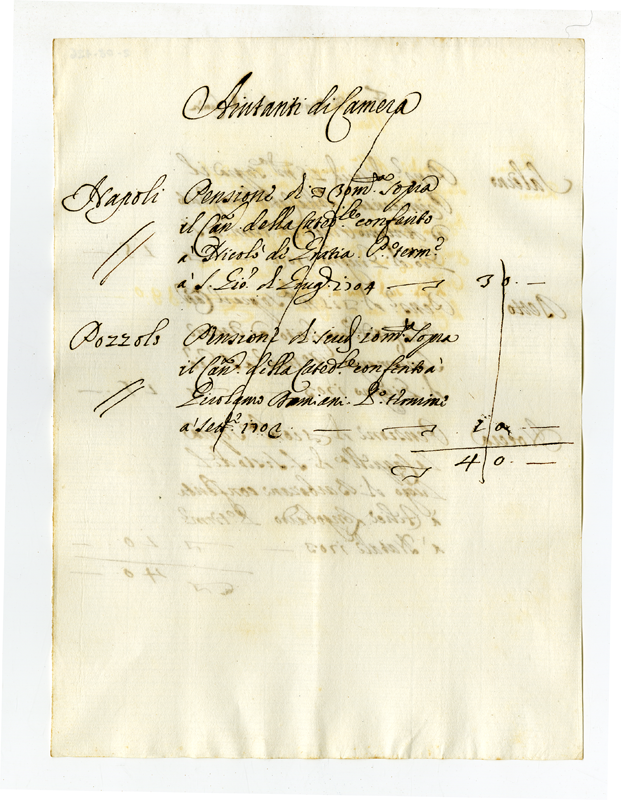 Aiutanti di Camera
Napoli Pensione di 30 m.ta Sopra
il Can.to della Cated.le conferito
à Nicolò di Gratia P.o term.e
à S. Gio. di Giug. 1704 — 30. —
Pozzolo Pensione di scudi 10 m.ta Sopra
il Can.to della Cated.le conferito à
Girolamo Damiani. P.o termine
à Sett.e 1702 — 10. —
40. —